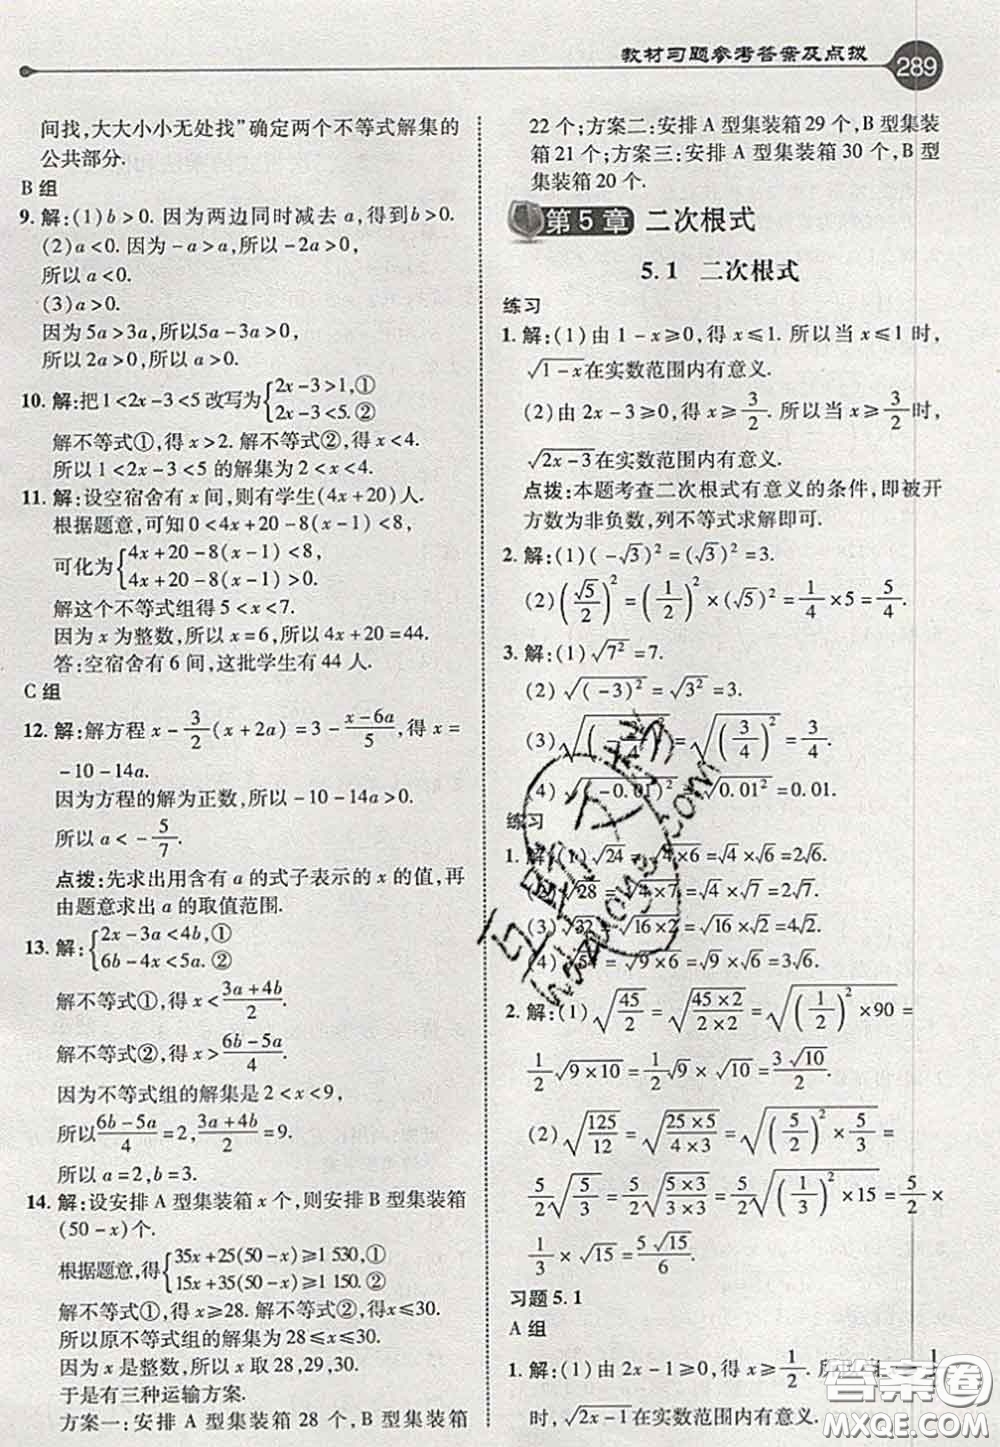 教材习题参考答案及点拨 289
间找,大大小小无处找”确定两个不等式解集的
公共部分.
B 组
9. 解:(1)b>0. 因为两边同时减去 a,得到 b>0.
(2)a<0. 因为 -a>a,所以 -2a>0,
所以 a<0.
(3)a>0.
因为 5a>3a,所以5a-3a>0,
所以 2a>0,所以 a>0.
10. 解:把 1<2x-3<5 改写为{2x-3>1,①
2x-3<5. ②
解不等式①,得 x>2. 解不等式②,得 x<4.
所以 1<2x-3<5 的解集为 2<x<4.
11. 解:设空宿舍有 x 间,则有学生(4x+20)人.
根据题意,可知 0<4x+20-8(x-1)<8,
可化为{4x+20-8(x-1)<8,
4x+20-8(x-1)>0,
解这个不等式组得 5<x<7.
因为 x 为整数,所以 x=6,所以 4x+20=44.
答:空宿舍有 6 间,这批学生有 44 人.
C 组
12. 解:解方程 x-3/2(x+2a)=3-(x-6a)/5,得 x=
-10-14a.
因为方程的解为正数,所以 -10-14a>0.
所以 a<-5/7.
点拨:先求出用含有 a 的式子表示的 x 的值,再
由题意求出 a 的取值范围.
13. 解:{2x-3a<4b,①
6b-4x<5a. ②
解不等式①,得 x<(3a+4b)/2.
解不等式②,得 x>(6b-5a)/4.
因为不等式组的解集是 2<x<9,
所以(6b-5a)/4=2,(3a+4b)/2=9.
所以 a=2,b=3.
14. 解:设安排 A 型集装箱 x 个,则安排 B 型集装箱
(50-x)个.
根据题意,得{35x+25(50-x)≥1 530,①
15x+35(50-x)≥1 150. ②
解不等式①,得 x≥28. 解不等式②,得 x≤30.
所以原不等式组的解集为 28≤x≤30.
因为 x 是整数,所以 x 取 28,29,30.
于是有三种运输方案.
方案一:安排 A 型集装箱 28 个,B 型集装箱
22 个;方案二:安排 A 型集装箱 29 个,B 型集装
箱 21 个;方案三:安排 A 型集装箱 30 个,B 型
集装箱 20 个.
第 5 章 二次根式
5.1 二次根式
练习
1. 解:(1)由 1-x≥0,得 x≤1. 所以当 x≤1 时,
√(1-x)在实数范围内有意义.
(2)由 2x-3≥0,得 x≥3/2. 所以当 x≥3/2时,
√(2x-3)在实数范围内有意义.
点拨:本题考查二次根式有意义的条件,即被开
方数为非负数,列不等式求解即可.
2. 解:(1)(-√3)²=(√3)²=3.
(2)(√5/2)²=(1/2)²×(√5)²=1/4×5=5/4.
3. 解:(1)√(7²)=7.
(2)√((-3)²)=√(3²)=3.
(3)√((-3/4)²)=√((3/4)²)=3/4.
(4)√((-0.01)²)=√(0.01²)=0.01.
练习
1. 解:(1)√24=√(4×6)=√4×√6=2√6.
(2)√28=√(4×7)=√4×√7=2√7.
(3)√32=√(16×2)=√16×√2=4√2.
(4)√54=√(9×6)=√9×√6=3√6.
2. 解:(1)√(45/2)=√((45×2)/(2×2))=√((1/2)²×90)=
1/2√(9×10)=1/2√9×√10=3√10/2.
(2)√(125/12)=√((25×5)/(4×3))=√((5/2)²×5/3)=
5/2√(5/3)=5/2√((5×3)/(3×3))=5/2√((1/3)²×15)=5/2×
1/3×√15=5√15/6.
习题 5.1
A 组
1. 解:(1)由 2x-1≥0,得 x≥1/2. 所以当 x≥1/2
时,√(2x-1)在实数范围内有意义.
答案圈
MXQE.COM